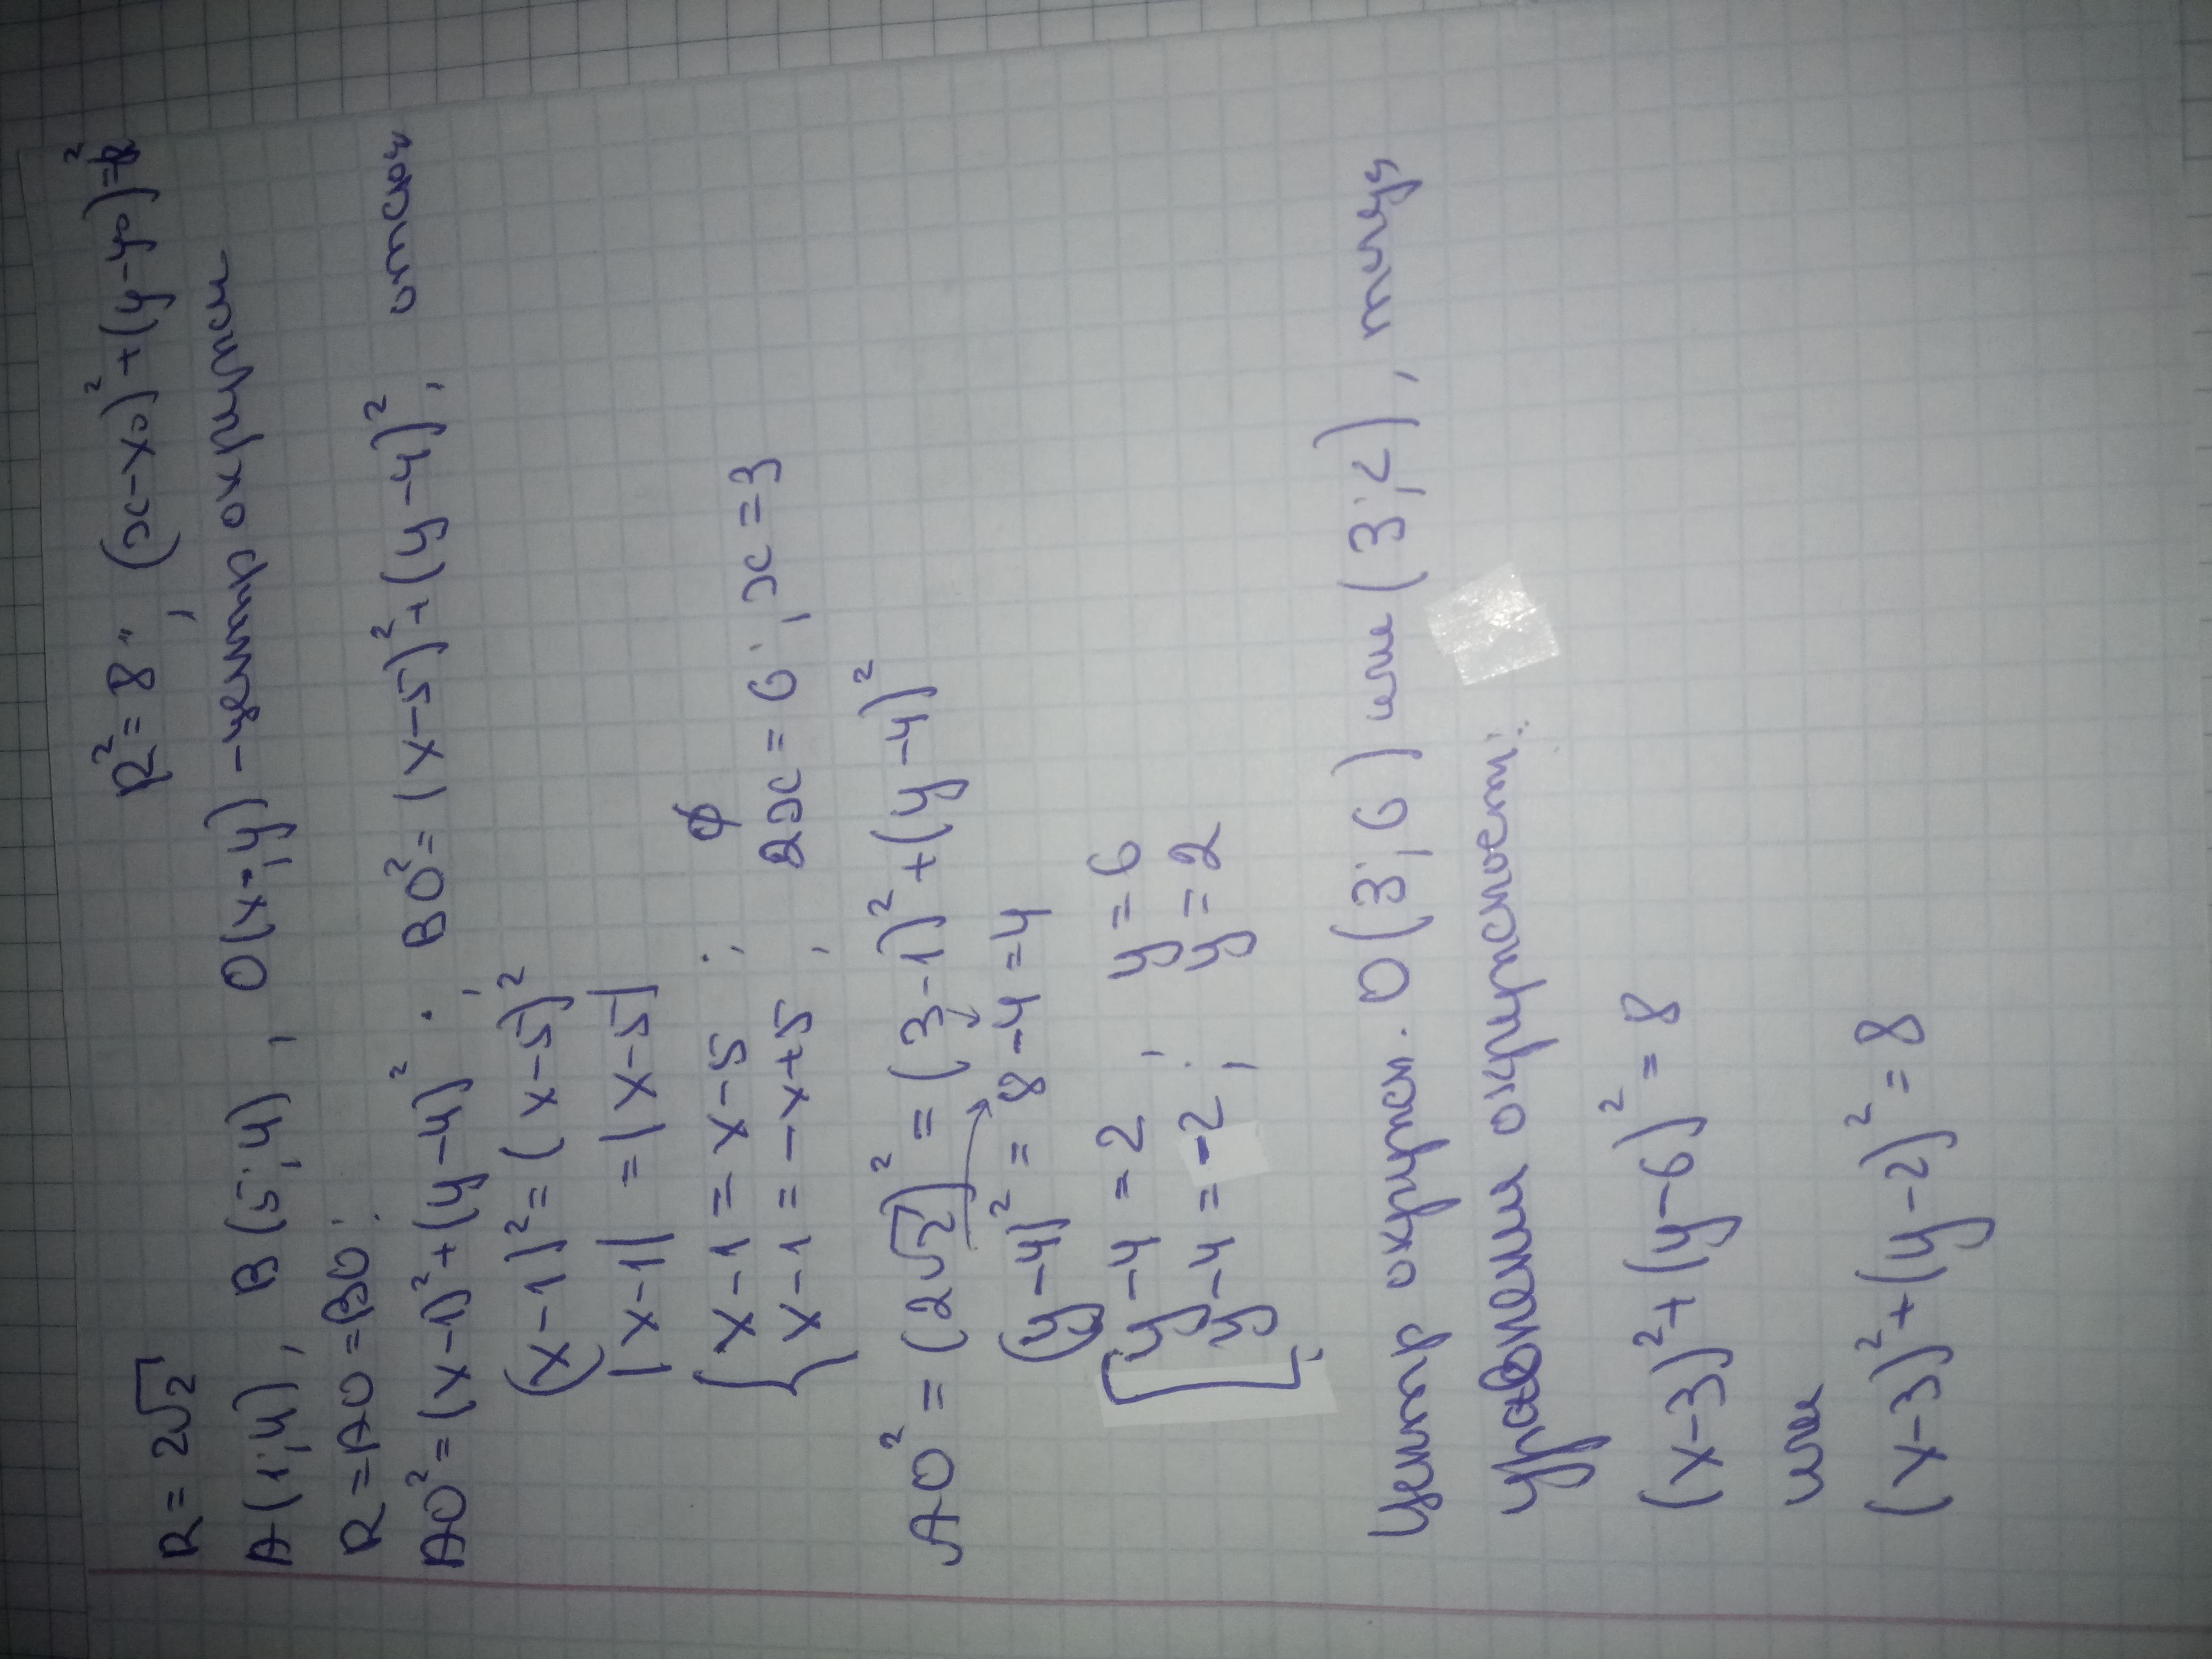 R = 2√2 R² = 8, (x-x₀)² + (y-y₀)² = R²
A(1;4), B(5;4), O(x;y) - центр окружн
R = AO = BO:
AO² = (x-1)² + (y-4)²; BO² = (x-5)² + (y-4)², отсюда
(x-1)² = (x-5)²
|x-1| = |x-5|
{ x-1 = x-5; ∅
x-1 = -x+5, 2x = 6; x = 3
AO² = (2√2)² = (3-1)² + (y-4)²
(y-4)² = 8-4 = 4
[ y-4 = 2, y = 6
y-4 = -2; y = 2
Центр окружн. O(3;6) или (3;2), тогда
уравнения окружности:
(x-3)² + (y-6)² = 8
или
(x-3)² + (y-2)² = 8